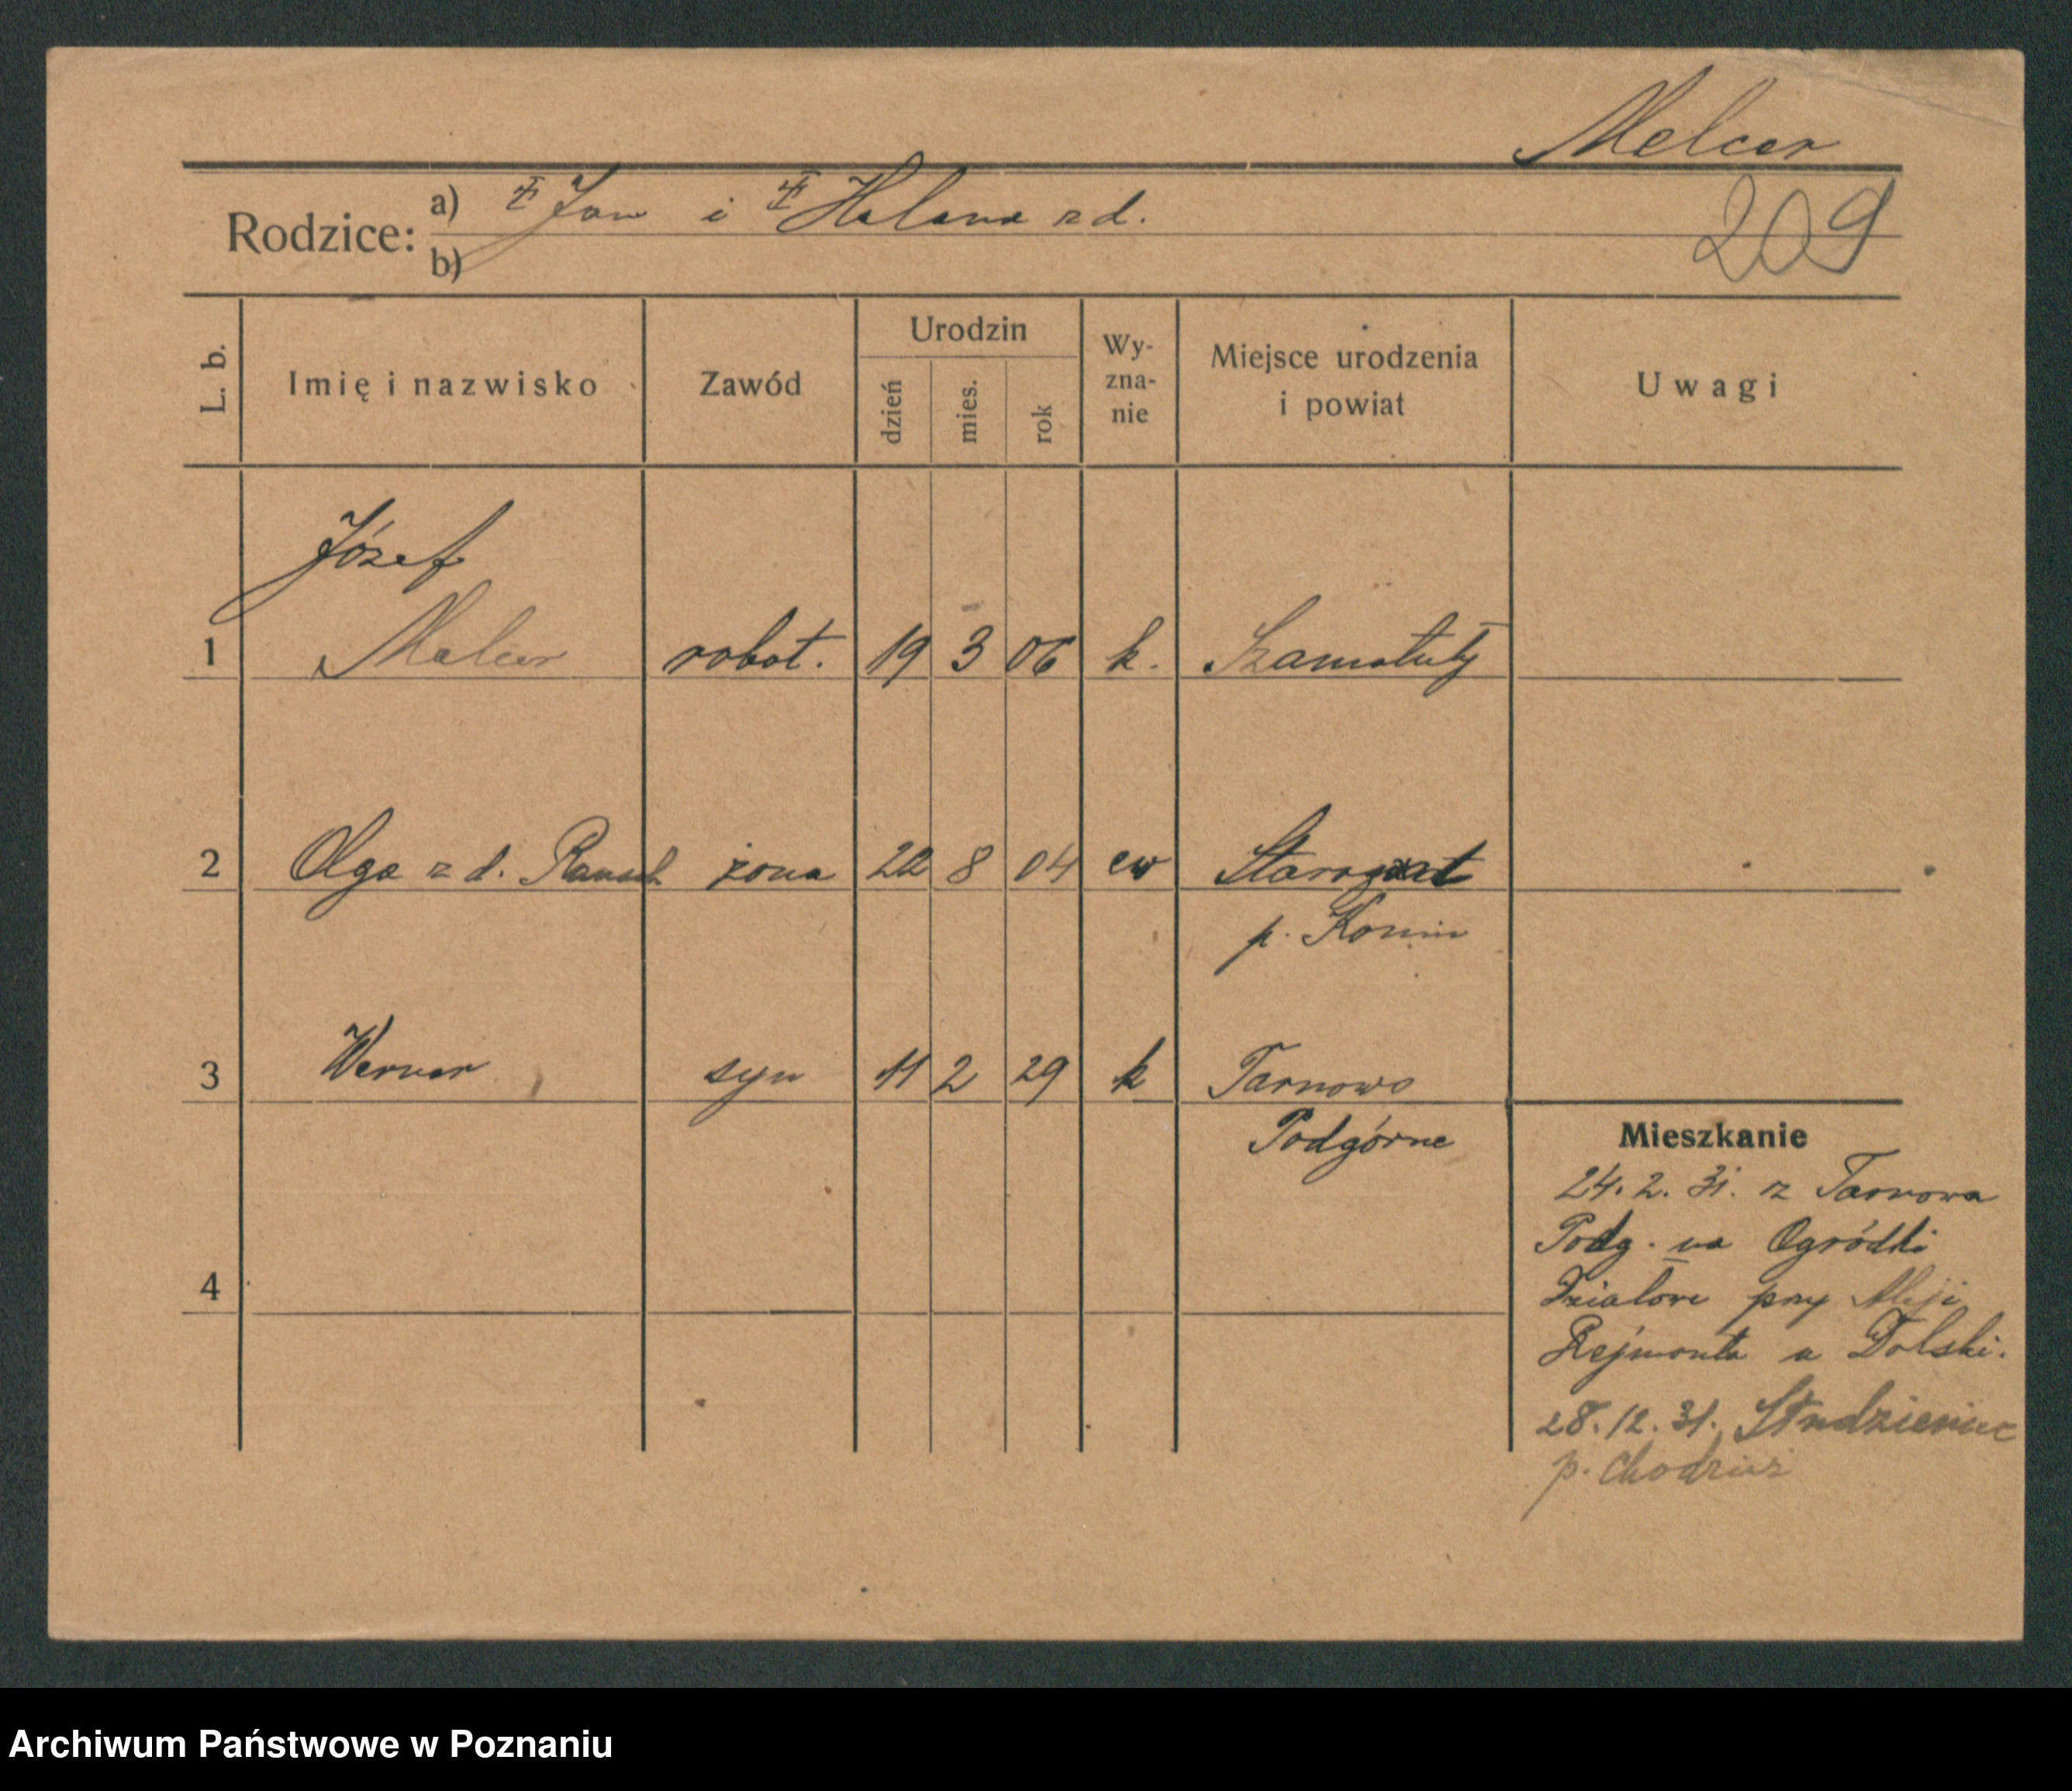 Melcer
Rodzice: a) ‡ Jan i ‡ Helena z d.
b)
209
L. b.
Imię i nazwisko
Zawód
Urodzin
dzień
mies.
rok
Wy-
zna-
nie
Miejsce urodzenia
i powiat
Uwagi
Józef
1 Melcer robot. 19 3 06 k. Szamotuły
2 Olga z d. Rausch żona 22 8 04 ew Starogart
p. Konin
3 Werner syn 11 2 29 k Tarnowo
Podgórne
4
Mieszkanie
24. 2. 31. z Tarnowa
Podg. na Ogródki
Działowe przy Aleji
Rejmonta u Dolski.
28. 12. 31. Studzieniec
p. Chodzież
Archiwum Państwowe w Poznaniu